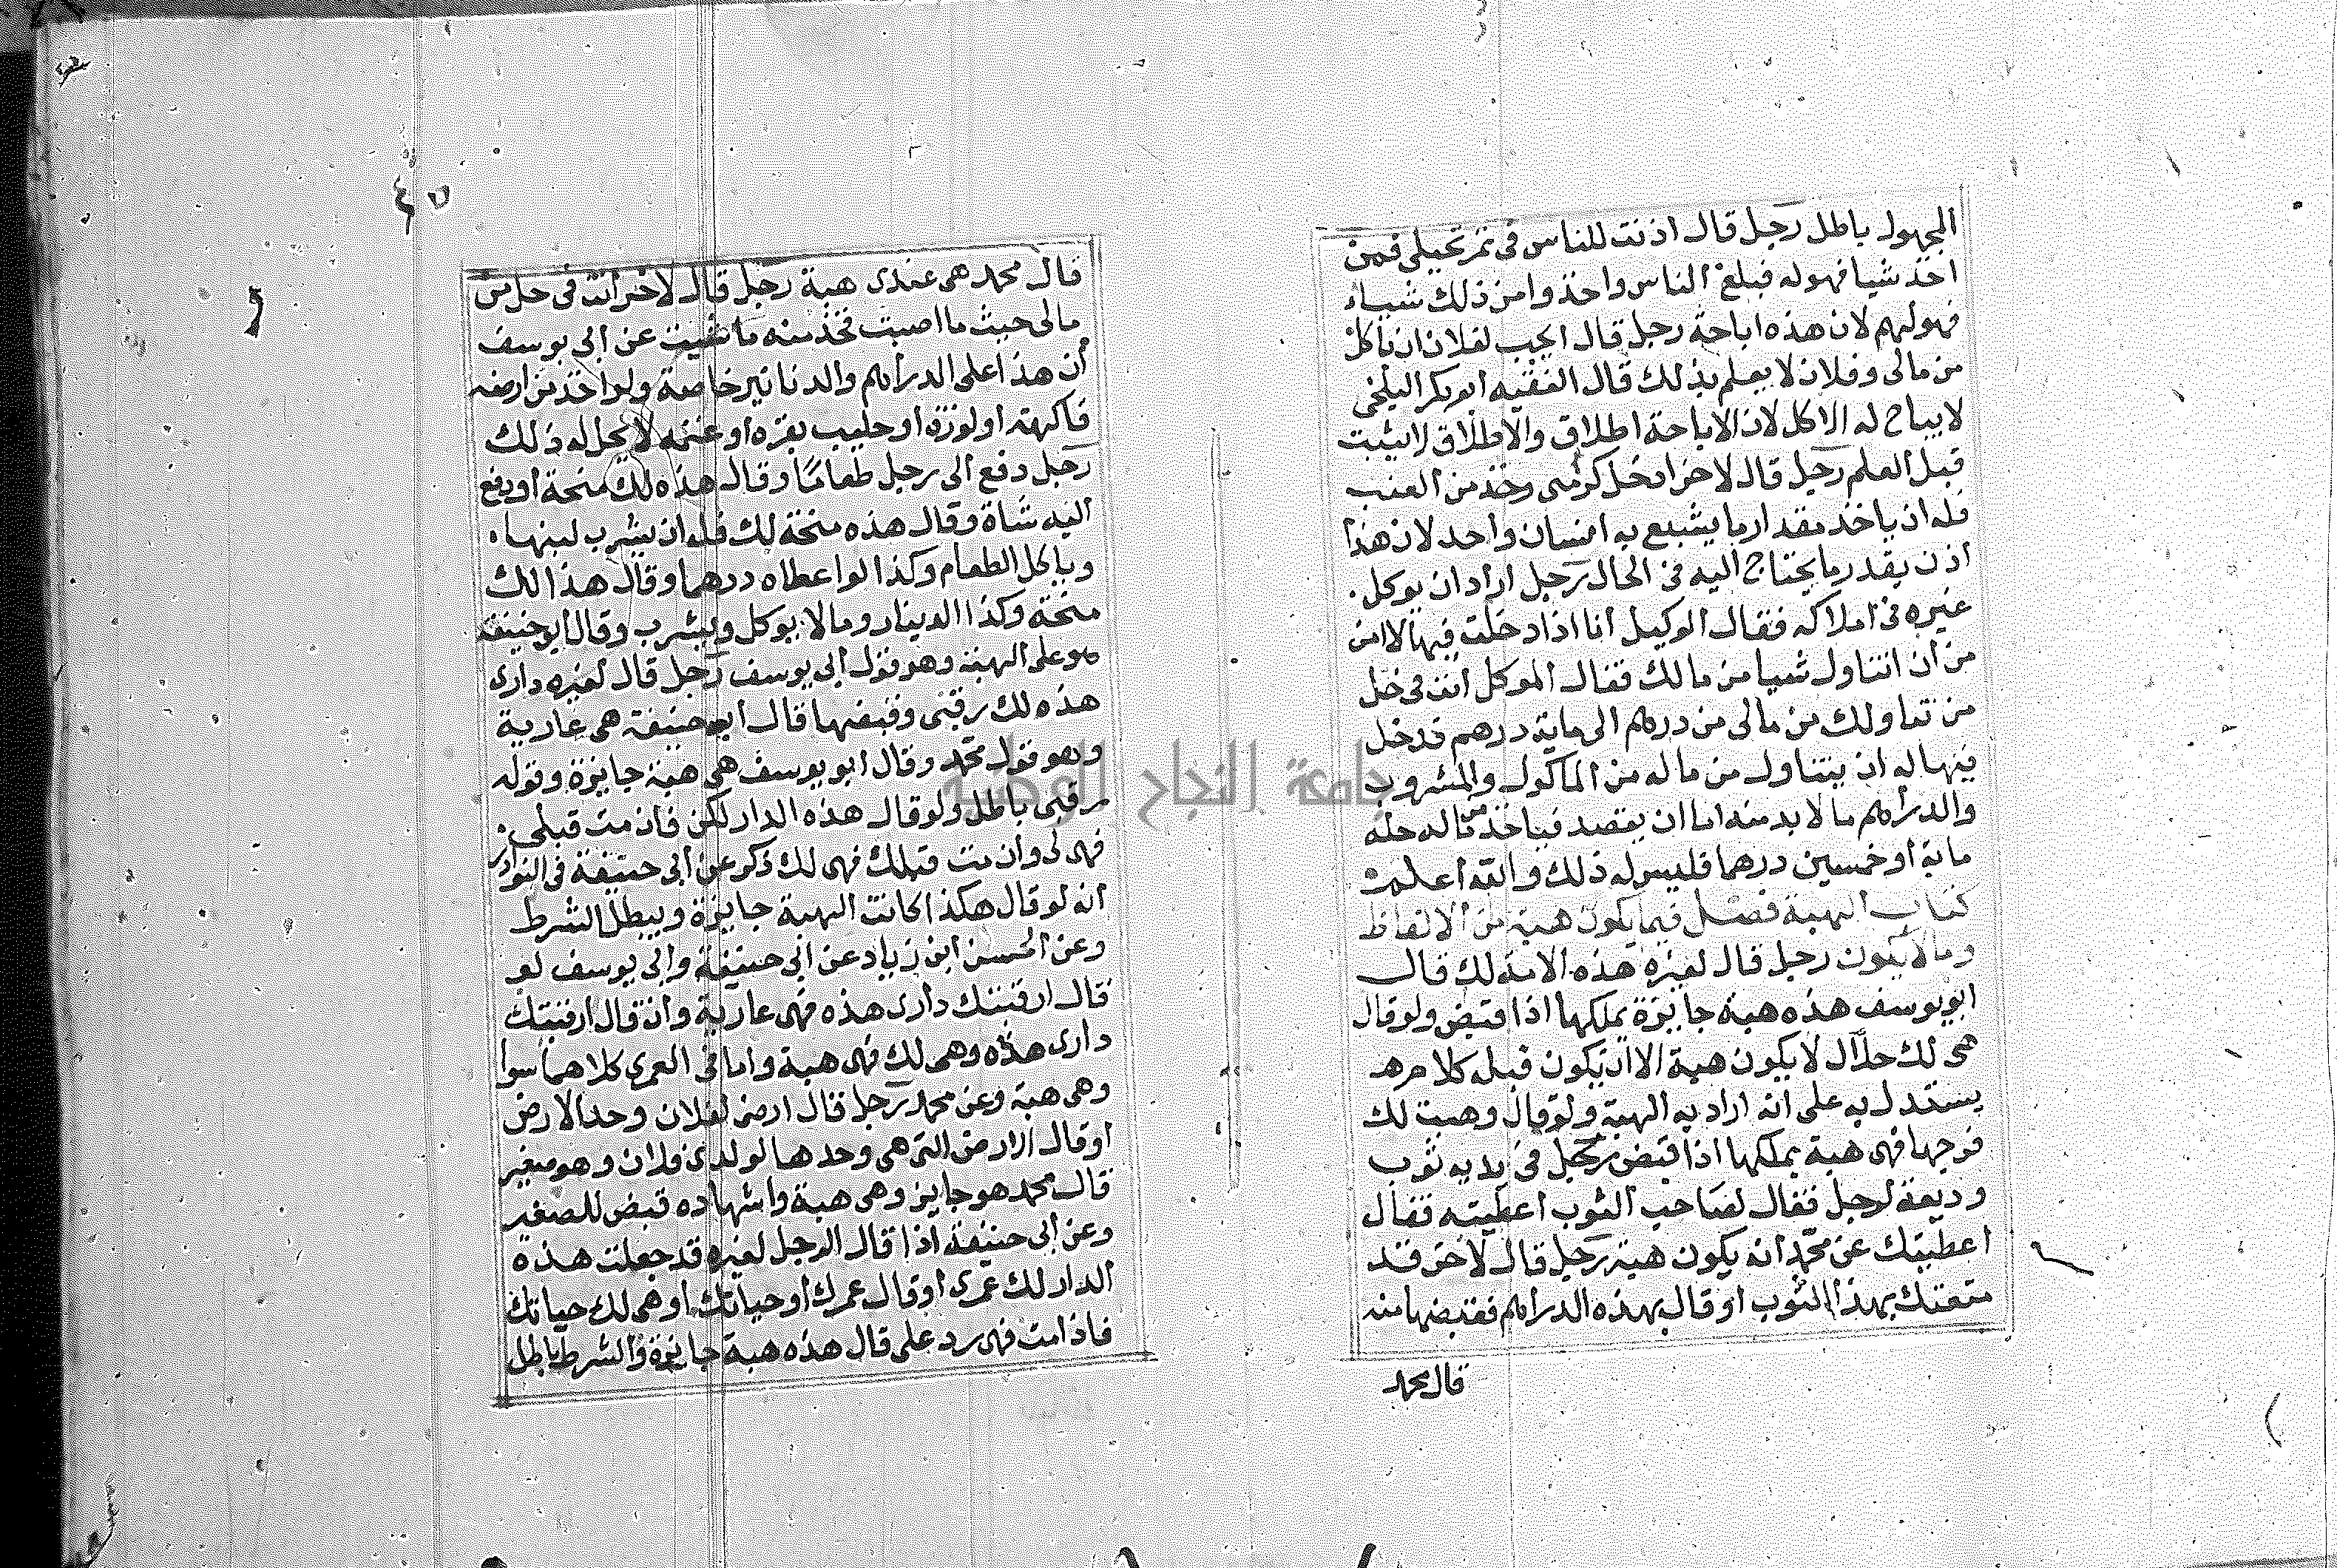 المجهول باطل رجل قال اذنت للناس فى ثمر نخيلى فمن
اخذ شيا فهوله فبلغ الناس واخذوا من ذلك شياء
فهولهم لان هذه اباحة رجل قال ابحت لفلان ان ياكل
من مالى وفلان لا يعلم بذلك قال الفقيه ابو بكر البلخى
لا يباح له الاكل لان الاباحة اطلاق والاطلاق لا يثبت
قبل العلم رجل قال لاخر ادخل كرمى وخذ من العنب
فله ان ياخذ مقدار ما يشبع به انسان واحد لان هذا
اذن بقدر ما يحتاج اليه فى الحال رجل اراد ان يوكل
غيره فى املاكه فقال الوكيل أنا اذا دخلت فيها لا امن
من أن اتناول شيا من مالك فقال الموكل أنت فى حل
من تناولك من مالى من درهم الى ماية درهم فدخل
فيها له ان يتناول من ماله من المأكول والمشروب
والدراهم ما لا بد منه اما ان يقصد فياخذ من ماله جملة
ماية أو خمسين درهما فليس له ذلك والله أعلم
كتاب الهبة فصل فيما يكون هبة من الالفاظ
وما لا يكون رجل قال لغيره هذه الامة لك قال
ابويوسف هذه هبة جايزة يملكها اذا قبض ولو قال
هى لك حلال لا يكون هبة الا أن يكون قبله كلام
يستدل به على انه اراد به الهبة ولو قال وهبت لك
فرجها فهى هبة يملكها اذا قبض رجل فى يديه ثوب
وديعة لرجل فقال لصاحب الثوب اعطيته فقال
اعطيتك عن محمد انه يكون هبة رجل قال لاخر قد
متعتك بهذا الثوب او قال بهذه الدراهم فقبضها منه
قال محمد
قال محمد هى عندى هبة رجل قال لاخر أنت فى حل من
مالى حيث ما اصبت فخذ منه ما شيت عن ابى يوسف
أن هذا على الدراهم والدنانير خاصة ولو اخذ من ارضه
فاكهة او لوزة او حليب بقره أو غنمه لا يحل له ذلك
رجل دفع الى رجل طعاما وقال هذه لك منحة أو دفع
اليه شاة وقال هذه منحة لك فله ان يشرب لبنها
وياكل الطعام وكذا لو اعطاه درهما وقال هذا لك
منحة وكذا الدينار وما لا يوكل ويشرب وقال أبو حنيفة
هو على الهبة وهو قول أبى يوسف رجل قال لغيره دارى
هذه لك رقبى وقبضها قال أبو حنيفة هى عارية
وهو قول محمد وقال ابو يوسف هى هبة جايزة وقوله
رقبى باطل ولو قال هذه الدار لك فأن مت قبلى
فهى لى وأن مت قبلك فهى لك ذكر عن أبى حنيفة فى النوادر
انه لو قال هكذا كانت الهبة جايزة ويبطل الشرط
وعن الحسن ابن زياد عن أبى حنيفة وابى يوسف لو
قال ارقبتك دارى هذه فهى عارية وأن قال ارقبتك
دارى هذه وهى لك فهى هبة واما فى العمرى كلاهما سوا
وهى هبة وعن محمد رجل قال ارضى لفلان وحد الارض
او قال الارض التى هى وحدها لولدى فلان وهو صغير
قال محمد هو جايز وهى هبة واشهاده قبض للصغير
وعن ابى حنيفة اذا قال الرجل لغيره قد جعلت هذه
الدار لك عمرى أو قال عمرك أو حياتك أو هى لك حياتك
فاذا مت فهى رد على قال هذه هبة جايزة والشرط باطل
جامعة النجاح الوطنية